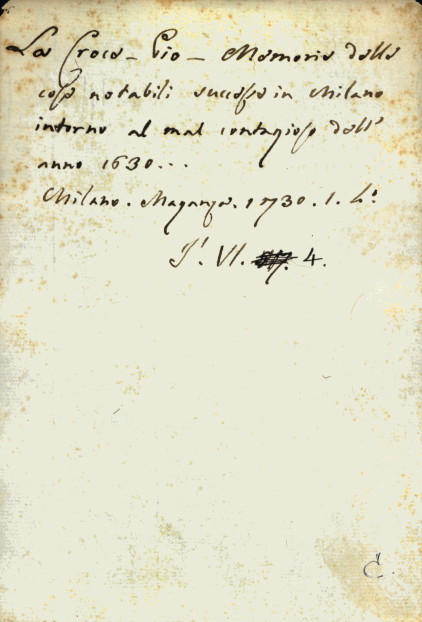 La Croce - Pio - Memorie delle
cose notabili successe in Milano
intorno al mal contagioso dell'
anno 1630...
Milano. Maganza. 1730. 1. 4.º
I'. VI. 4.
C.